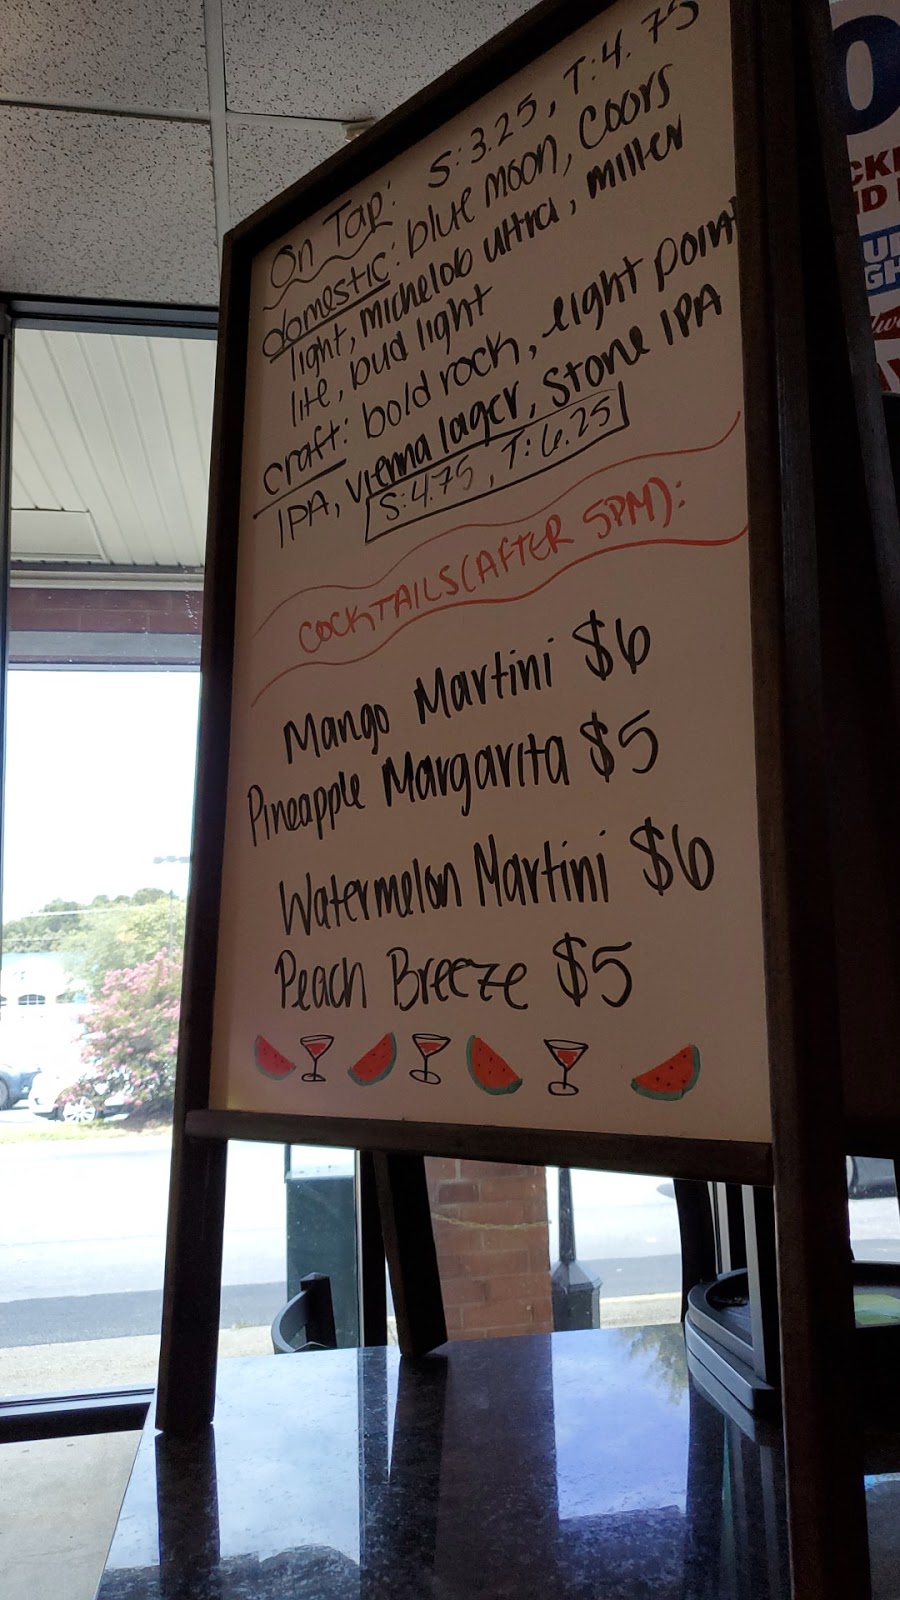 On Tap: S:3.25, T:4.75
domestic: blue moon, Coors
light, michelob ultra, miller
lite, bud light
craft: bold rock, eight point
IPA, vienna lager, Stone IPA
S:4.75, T:6.25
COCKTAILS (AFTER 5PM):
Mango Martini $6
Pineapple Margarita $5
Watermelon Martini $6
Peach Breeze $5